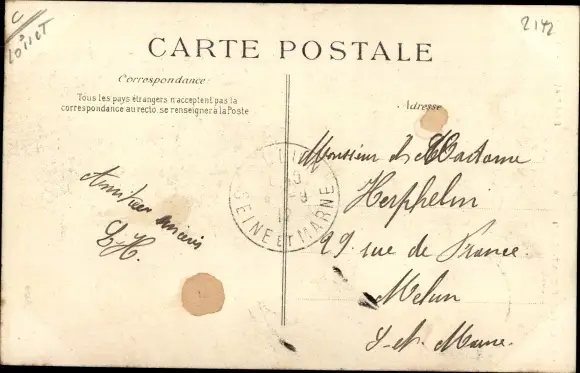 C
Loiret
2142
CARTE POSTALE
Correspondance
Tous les pays étrangers n'acceptent pas la
correspondance au recto, se renseigner à la Poste
Adresse
Amitiés
E.H.
MELUN
SEINE ET MARNE
Monsieur & Madame
Herphelin
29. rue de France.
Melun
S-et-Marne.